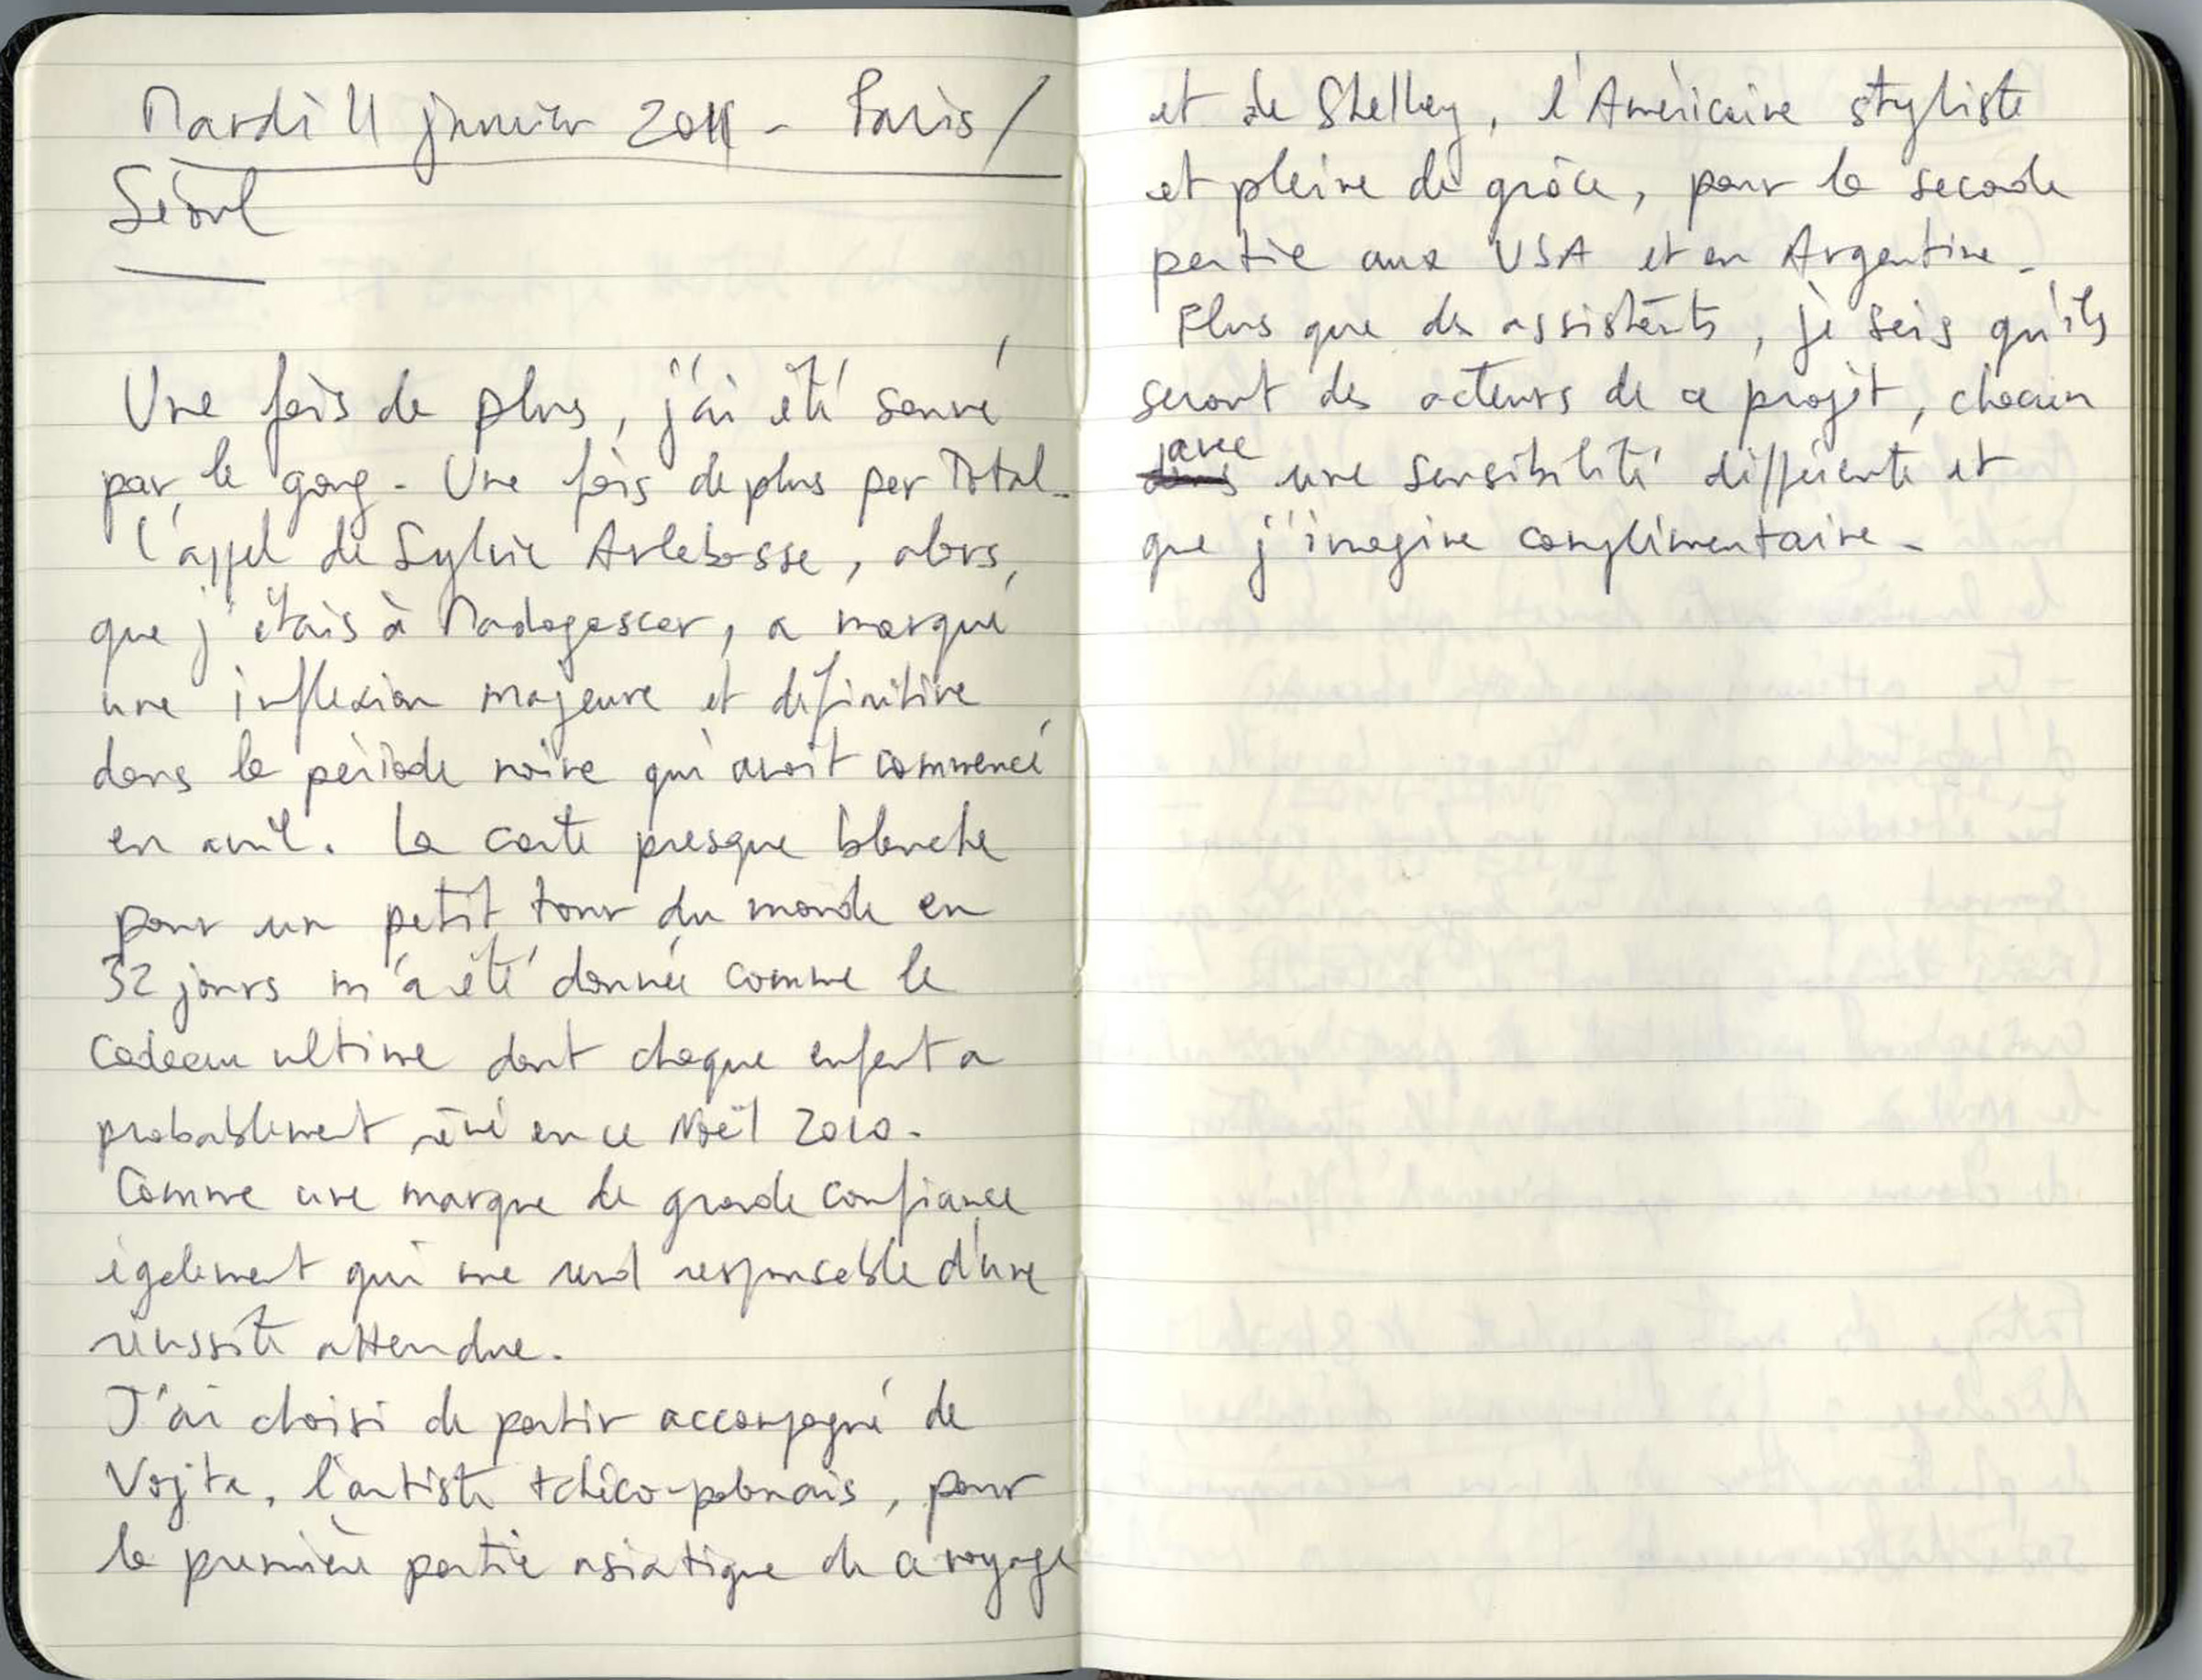 Mardi 11 janvier 2011 - Paris /
Séoul
Une fois de plus, j'ai été sauvé
par le gong. Une fois de plus par Total.
L'appel de Sylvie Arlebosse, alors
que j'étais à Madagascar, a marqué
une inflexion majeure et définitive
dans la période noire qui avait commencé
en avril. La carte presque blanche
pour un petit tour du monde en
32 jours m'a été donnée comme le
cadeau ultime dont chaque enfant a
probablement rêvé en ce Noël 2010.
Comme une marque de grande confiance
également qui me rend responsable d'une
réussite attendue.
J'ai choisi de partir accompagné de
Vojta, l'artiste tchéco-polonais, pour
la première partie asiatique de ce voyage
et de Shelley, l'Américaine styliste
et pleine de grâce, pour la seconde
partie aux USA et en Argentine.
Plus que des assistants, je sais qu'ils
seront des acteurs de ce projet, chacun
avec une sensibilité différente et
que j'imagine complémentaire.